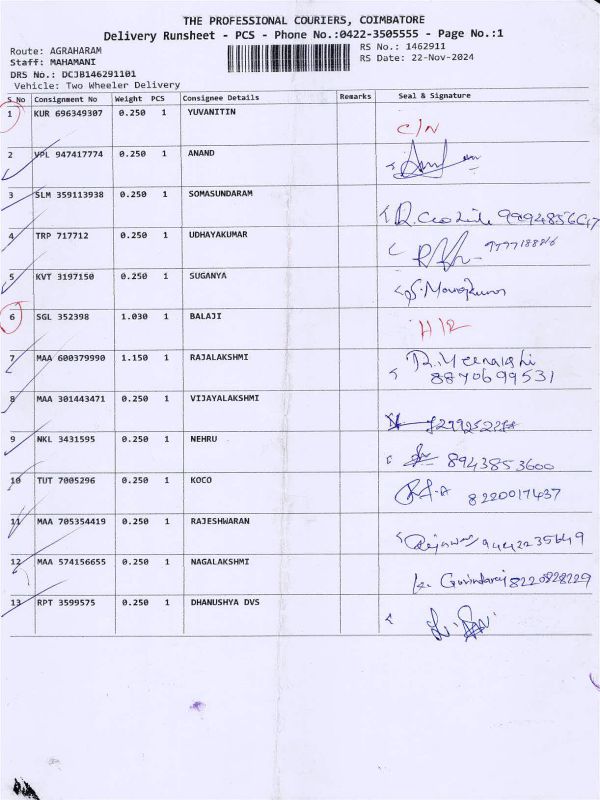 THE PROFESSIONAL COURIERS, COIMBATORE
Delivery Runsheet - PCS - Phone No.:0422-3505555 - Page No.:1
Route: AGRAHARAM
RS No.: 1462911
Staff: MAHAMANI
RS Date: 22-Nov-2024
DRS No.: DCJB146291101
Vehicle: Two Wheeler Delivery
S No Consignment No Weight PCS Consignee Details Remarks Seal & Signature
1 KUR 696349307 0.250 1 YUVANITIN C/N
2 VPL 947417774 0.250 1 ANAND
3 SLM 359113938 0.250 1 SOMASUNDARAM
4 TRP 717712 0.250 1 UDHAYAKUMAR
5 KVT 3197150 0.250 1 SUGANYA
6 SGL 352398 1.030 1 BALAJI
7 MAA 600379990 1.150 1 RAJALAKSHMI
8870699531
8 MAA 301443471 0.250 1 VIJAYALAKSHMI
9 NKL 3431595 0.250 1 NEHRU 8943853600
10 TUT 7005296 0.250 1 KOCO 8220017437
11 MAA 705354419 0.250 1 RAJESHWARAN
12 MAA 574156655 0.250 1 NAGALAKSHMI Govindaraj 8220828229
13 RPT 3599575 0.250 1 DHANUSHYA DVS